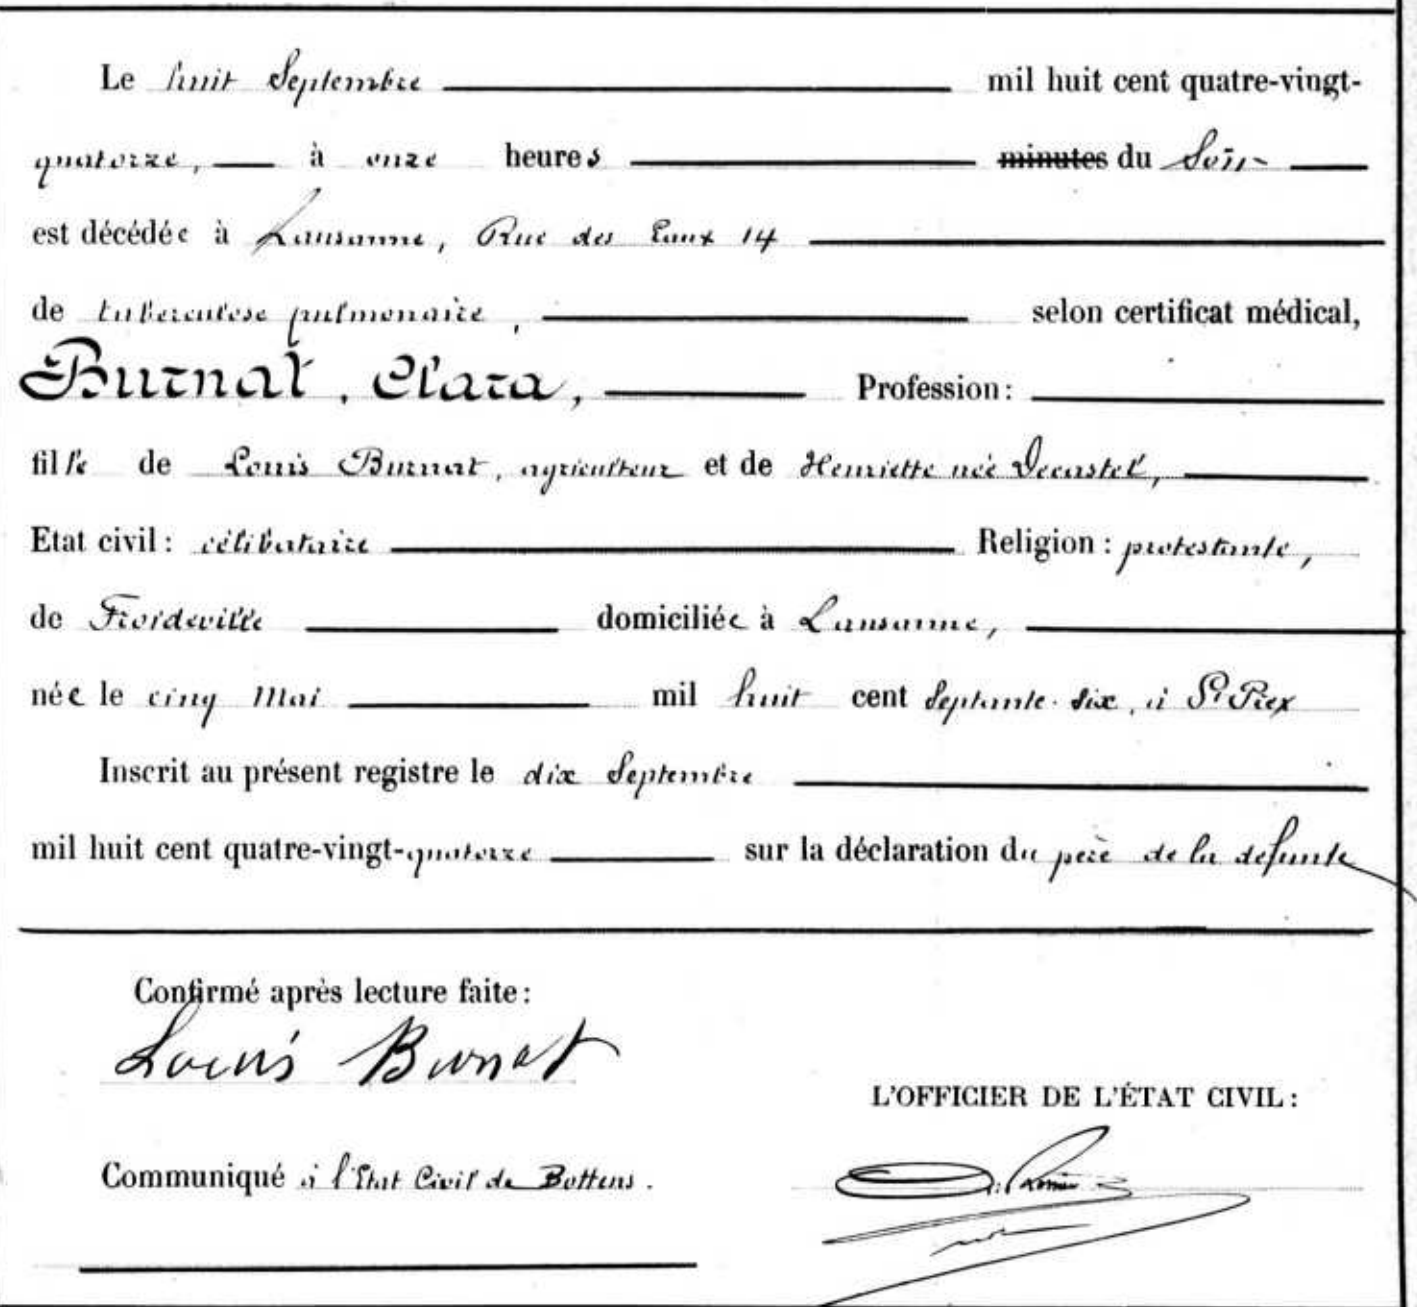 Le huit Septembre mil huit cent quatre-vingt-
quatorze, à onze heures minutes du Soir
est décédée à Lausanne, Rue des Eaux 14
de tuberculose pulmonaire, selon certificat médical,
Burnat, Clara, Profession:
fille de Louis Burnat, agriculteur et de Henriette née Decastel,
Etat civil: célibataire Religion: protestante,
de Froideville domiciliée à Lausanne,
née le cinq Mai mil huit cent septante-six, à St Prex
Inscrit au présent registre le dix Septembre
mil huit cent quatre-vingt-quatorze sur la déclaration du père de la défunte
Confirmé après lecture faite:
Louis Burnat
L'OFFICIER DE L'ÉTAT CIVIL:
Communiqué à l'Etat Civil de Bottens.